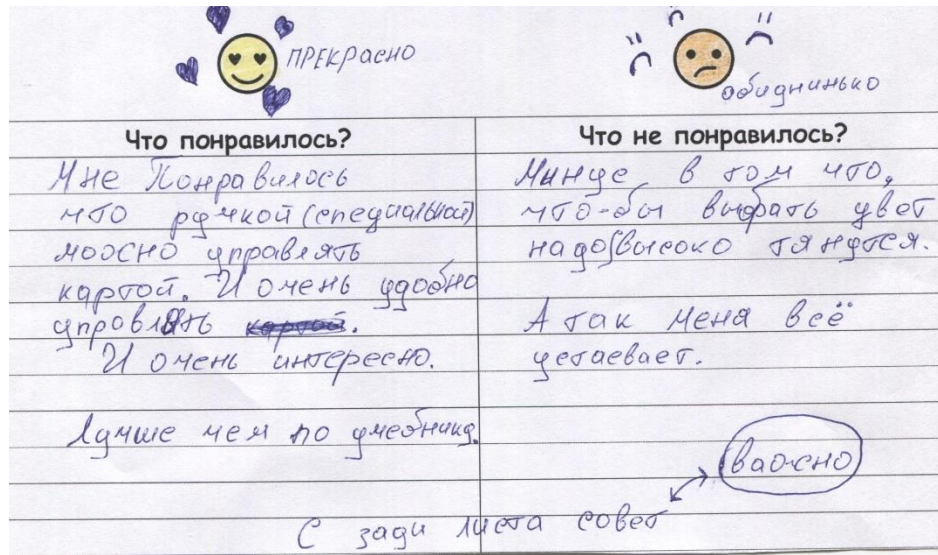 ПРЕКРАСНО
обиднинько
Что понравилось?
Мне Понравилось
что ручкой (специальной)
можно управлять
картой. И очень удобно
упровлять картой.
И очень интересно.
Лучше чем по учебнику.
Что не понравилось?
Минус в том что,
что-бы выбрать цвет
надо высоко тянутся.
А так меня всё
устаевает.
важно
С зади листа совет